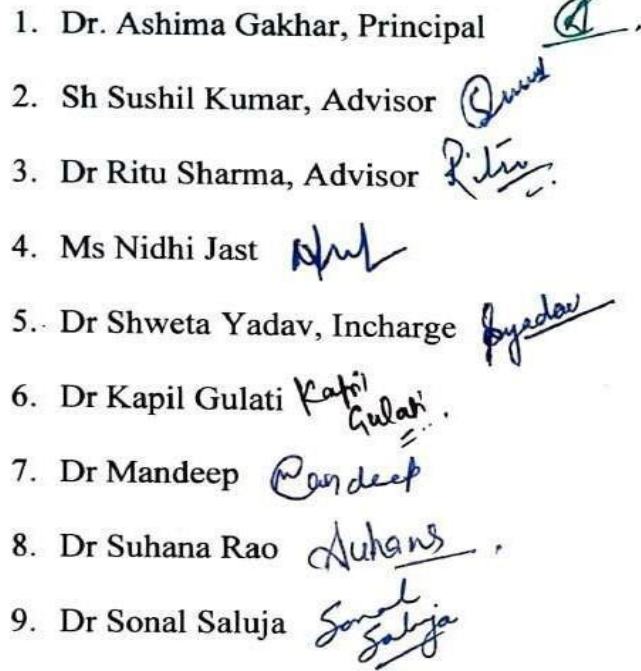 1. Dr. Ashima Gakhar, Principal
2. Sh Sushil Kumar, Advisor
3. Dr Ritu Sharma, Advisor Ritu
4. Ms Nidhi Jast
5. Dr Shweta Yadav, Incharge Syadav
6. Dr Kapil Gulati Kapil
Gulati
7. Dr Mandeep Mandeep
8. Dr Suhana Rao Suhana
9. Dr Sonal Saluja Sonal
Saluja